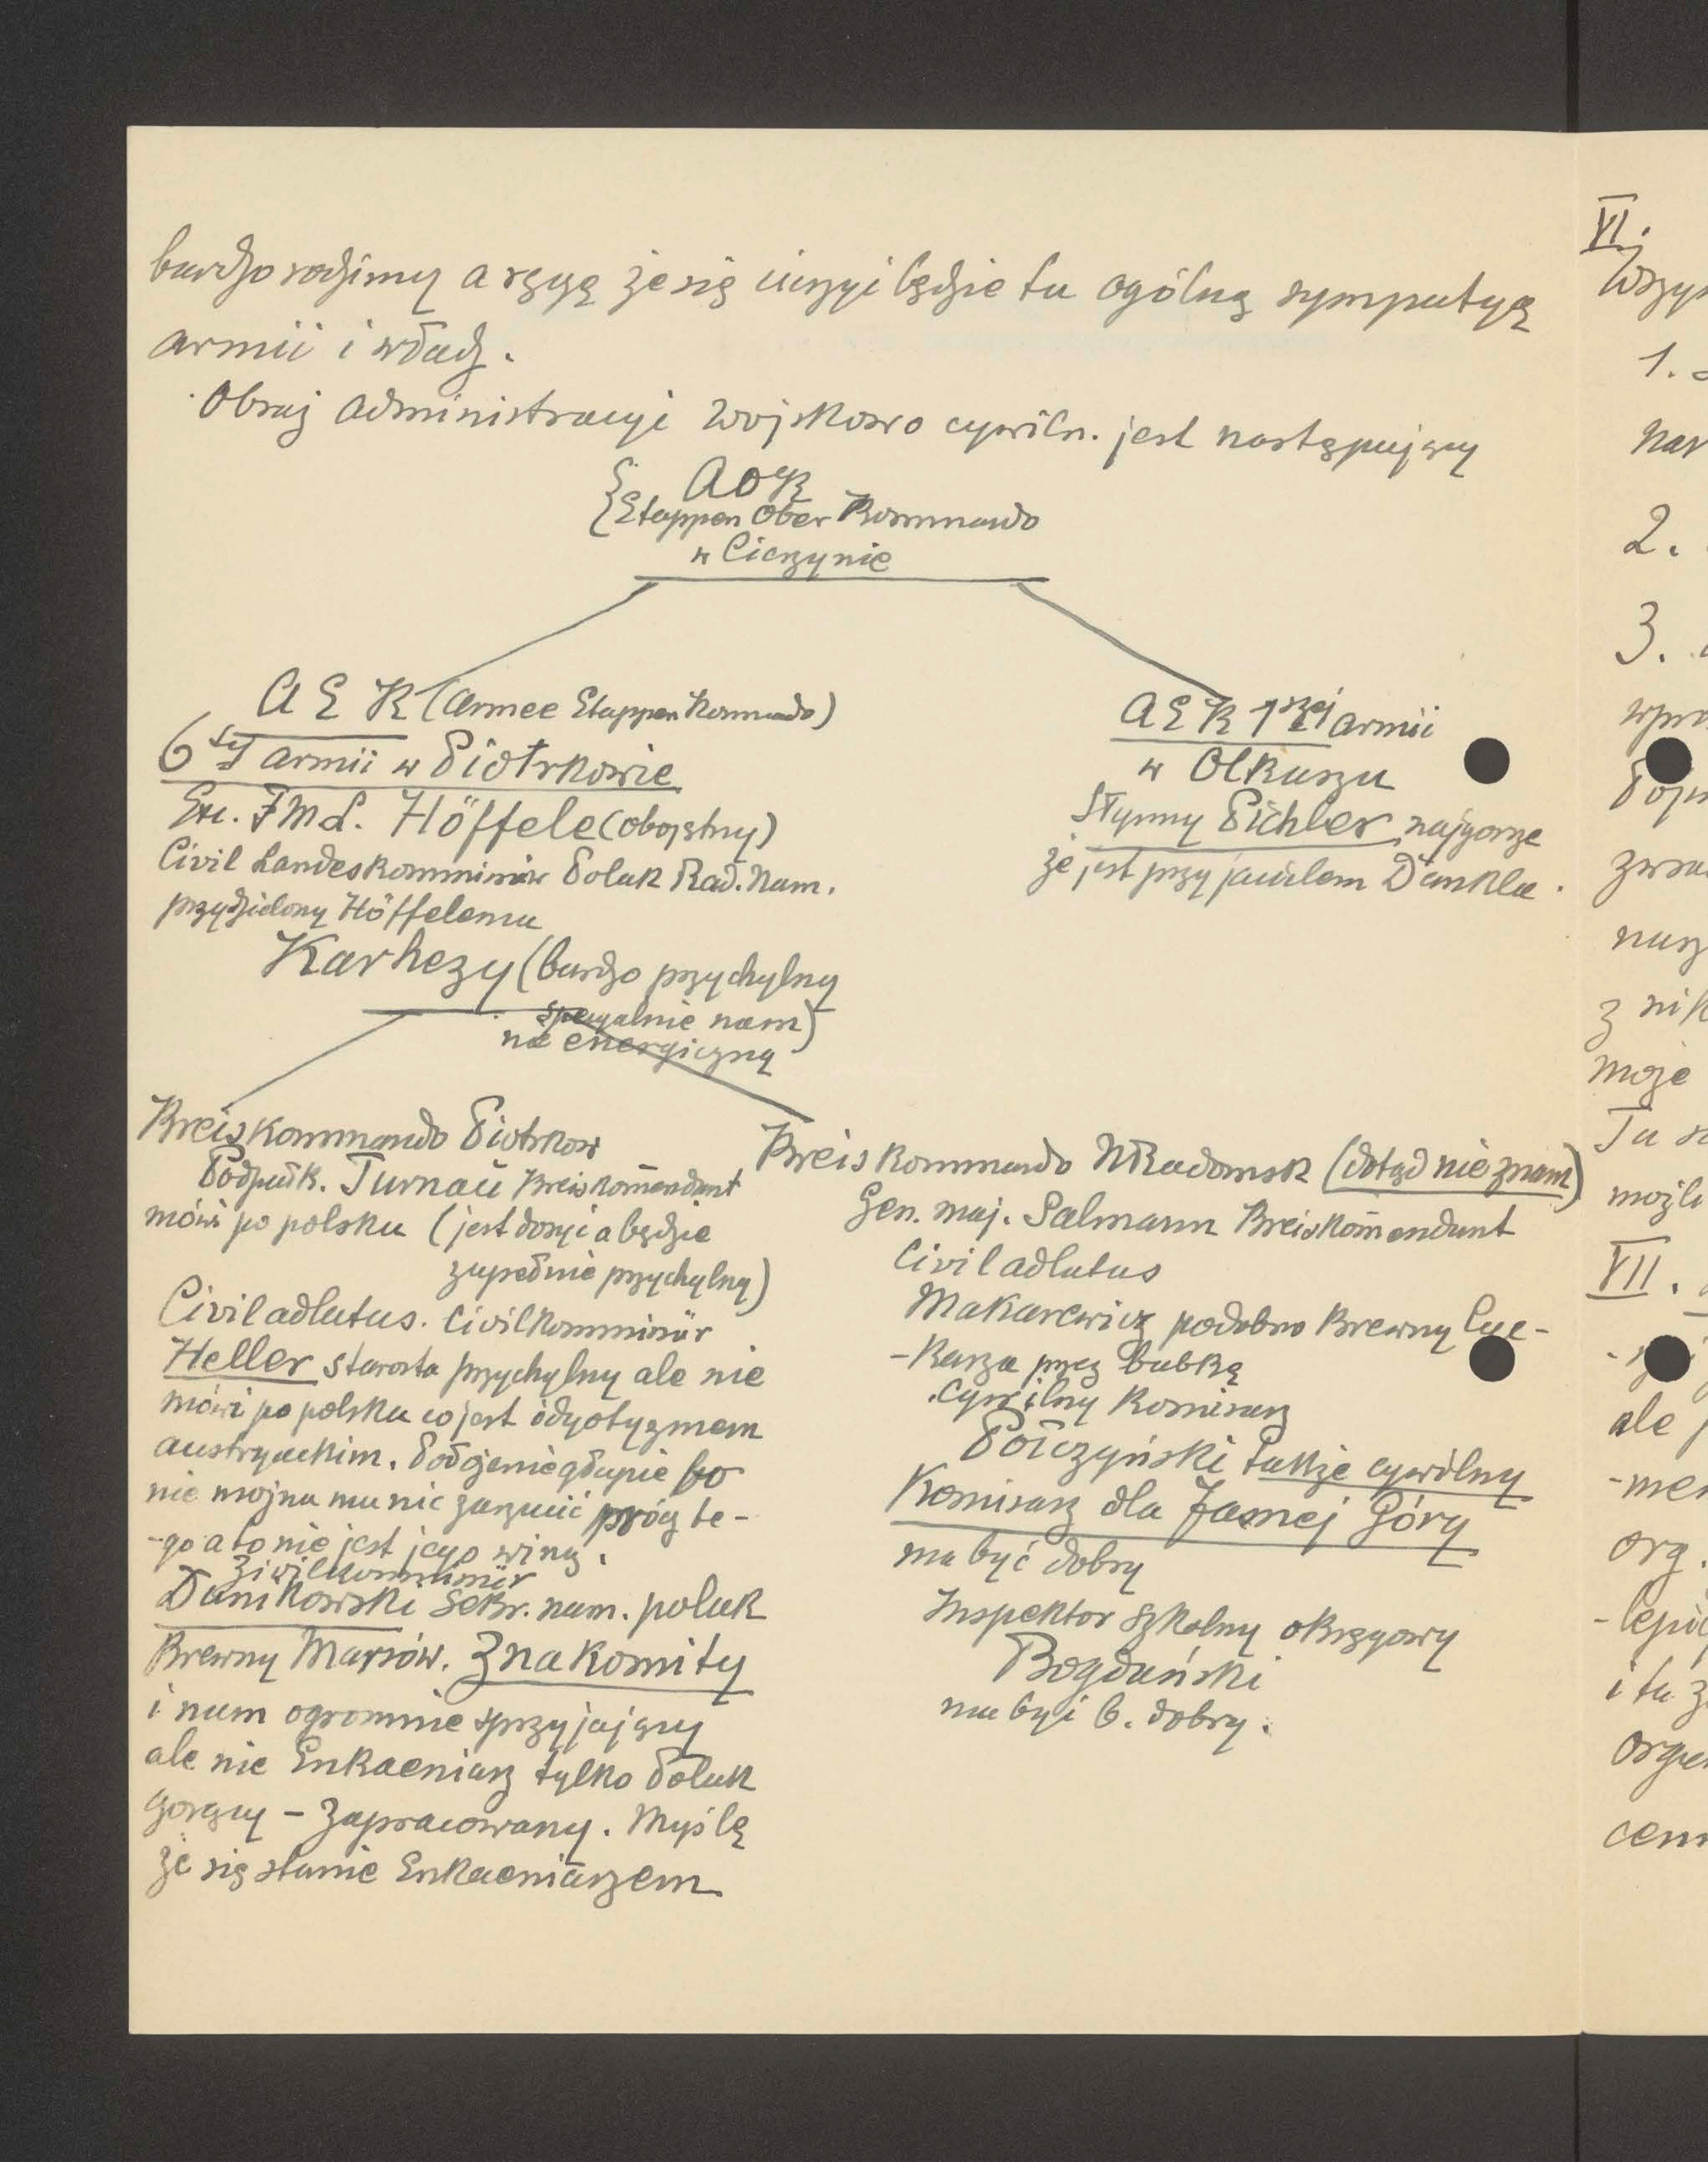 bardzo radzimy a ręczę że się cieszyć będzie tu ogólną sympatyą
armii i władz.
Obraz administracyi wojskowo cywiln. jest następujący
AOK
Etappen Ober Kommando
w Cieszynie
AEK (Armee Etappen Kommando)
6tej armii w Piotrkowie
Exc. FML. Höffele (obojętny)
Civil Landeskommissär Polak Rad. Nam.
przydzielony Höffelemu
Karhezy (bardzo przychylny
specyalnie nam)
nie energiczny
AEK 1szej armii
w Olkuszu
Słynny Pichler najgorsze
że jest przyjacielem Dankla.
Kreiskommando Piotrkow
Podpułk. Turnau Kreiskom̄endant
mówi po polsku (jest dosyć a będzie
zupełnie przychylny)
Civiladlatus. Civilkommissär
Heller starosta przychylny ale nie
mówi po polsku co jest idyotyzmem
austryackim. Położenie głupie bo
nie można mu nic zarzucić prócz te-
-go a to nie jest jego winą.
Zivilkommissär
Danikowski Sekr. nam. polak
Krewny Marsów. Znakomity
i nam ogromnie sprzyjający
ale nie Enkaeniarz tylko Polak
gorący - Zapracowany. Myślę
że się stanie Enkaeniarzem
Kreiskommando NRadomsk (dotąd nie znam)
Gen. maj. Salmann Kreiskom̄endant
Civiladlatus
Makarewicz podobno Krewny Łue-
-Karza przez babkę
.cywilny Komisarz
Połczyński także cywilny
Komisarz dla Jasnej Góry
ma być dobry
Inspektor szkolny okręgowy
Bogdański
ma być b. dobry.
VI.
1.
2.
3.
z nik
może
Tu
możli
VII.
ale
org.
i tu